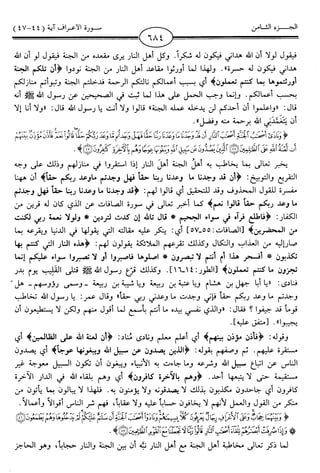 الجزء الثامن
٦٨٤
سورة الأعراف آية (٤٤-٤٧)
فيقول لولا أن الله هداني فيكون له شكراً. وكل أهل النار يرى مقعده من الجنة فيقول لو أن الله
هداني فيكون له حسرة». ولهذا لما أورثوا مقاعد أهل النار من الجنة نودوا ﴿أن تلكم الجنة
أورثتموها بما كنتم تعملون﴾ أي بسبب أعمالكم نالتكم الرحمة فدخلتم الجنة وتبوأتم منازلكم
بحسب أعمالكم. وإنما وجب الحمل على هذا لما ثبت في الصحيحين عن رسول الله ﷺ أنه
قال: «واعلموا أن أحدكم لن يدخله عمله الجنة» قالوا ولا أنت يا رسول الله قال: «ولا أنا إلا
أن يتغمدني الله برحمة منه وفضل».
﴿وَنَادَىٰ أَصْحَابُ الْجَنَّةِ أَصْحَابَ النَّارِ أَن قَدْ وَجَدْنَا مَا وَعَدَنَا رَبُّنَا حَقًّا فَهَلْ وَجَدتُّم مَّا وَعَدَ رَبُّكُمْ حَقًّا قَالُوا نَعَمْ فَأَذَّنَ مُؤَذِّنٌ بَيْنَهُمْ
أَن لَّعْنَةُ اللَّهِ عَلَى الظَّالِمِينَ ﴿٤٤﴾ الَّذِينَ يَصُدُّونَ عَن سَبِيلِ اللَّهِ وَيَبْغُونَهَا عِوَجًا وَهُم بِالْآخِرَةِ كَافِرُونَ ﴿٤٥﴾﴾
يخبر تعالى بما يخاطب به أهل الجنة أهل النار إذا استقروا في منازلهم وذلك على وجه
التقريع والتوبيخ: ﴿أن قد وجدنا ما وعدنا ربنا حقاً فهل وجدتم ما وعد ربكم حقاً﴾ أن ههنا
مفسرة للقول المحذوف وقد للتحقيق أي قالوا لهم: ﴿قد وجدنا ما وعدنا ربنا حقاً فهل وجدتم
ما وعد ربكم حقاً قالوا نعم﴾ كما أخبر تعالى في سورة الصافات عن الذي كان له قرين من
الكفار: ﴿فاطلع فرآه في سواء الجحيم * قال تالله إن كدت لتردين * ولولا نعمة ربي لكنت
من المحضرين﴾ [الصافات: ٥٥-٥٧] أي: ينكر عليه مقالته التي يقولها في الدنيا ويقرعه بما
صار إليه من العذاب والنكال وكذلك تقرعهم الملائكة يقولون لهم: ﴿هذه النار التي كنتم بها
تكذبون * أفسحر هذا أم أنتم لا تبصرون * اصلوها فاصبروا أو لا تصبروا سواء عليكم إنما
تجزون ما كنتم تعملون﴾ [الطور: ١٤-١٦]. وكذلك قرّع رسول الله ﷺ قتلى القليب يوم بدر
فنادى: «يا أبا جهل بن هشام ويا عتبة بن ربيعة ويا شيبة بن ربيعة - وسمى رؤوسهم - هل
وجدتم ما وعد ربكم حقاً فإني وجدت ما وعدني ربي حقاً» وقال عمر: يا رسول الله تخاطب
قوماً قد جيفوا؟ فقال: «والذي نفسي بيده ما أنتم بأسمع لما أقول منهم ولكن لا يستطيعون أن
يجيبوا». [متفق عليه].
وقوله: ﴿فأذن مؤذن بينهم﴾ أي أعلم معلم ونادى مُناد: ﴿أن لعنة الله على الظالمين﴾ أي
مستقرة عليهم. ثم وصفهم بقوله: ﴿الذين يصدون عن سبيل الله ويبغونها عوجاً﴾ أي يصدون
الناس عن اتباع سبيل الله وشرعه وما جاءت به الأنبياء ويبغون أن تكون السبيل معوجة غير
مستقيمة حتى لا يتبعها أحد. ﴿وهم بالآخرة كافرون﴾ أي وهم بلقاء الله في الدار الآخرة
كافرون أي جاحدون مكذبون بذلك لا يصدقونه ولا يؤمنون به. فلهذا لا يبالون بما يأتون من
منكر من القول والعمل لأنهم لا يخافون حساباً عليه ولا عقاباً، فهم شر الناس أقوالاً وأعمالاً.
﴿وَبَيْنَهُمَا حِجَابٌ وَعَلَى الْأَعْرَافِ رِجَالٌ يَعْرِفُونَ كُلًّا بِسِيمَاهُمْ وَنَادَوْا أَصْحَابَ الْجَنَّةِ أَن سَلَامٌ عَلَيْكُمْ لَمْ يَدْخُلُوهَا وَهُمْ يَطْمَعُونَ ﴿٤٦﴾
وَإِذَا صُرِفَتْ أَبْصَارُهُمْ تِلْقَاءَ أَصْحَابِ النَّارِ قَالُوا رَبَّنَا لَا تَجْعَلْنَا مَعَ الْقَوْمِ الظَّالِمِينَ ﴿٤٧﴾﴾
لما ذكر تعالى مخاطبة أهل الجنة مع أهل النار نبَّه أن بين الجنة والنار حجاباً، وهو الحاجز